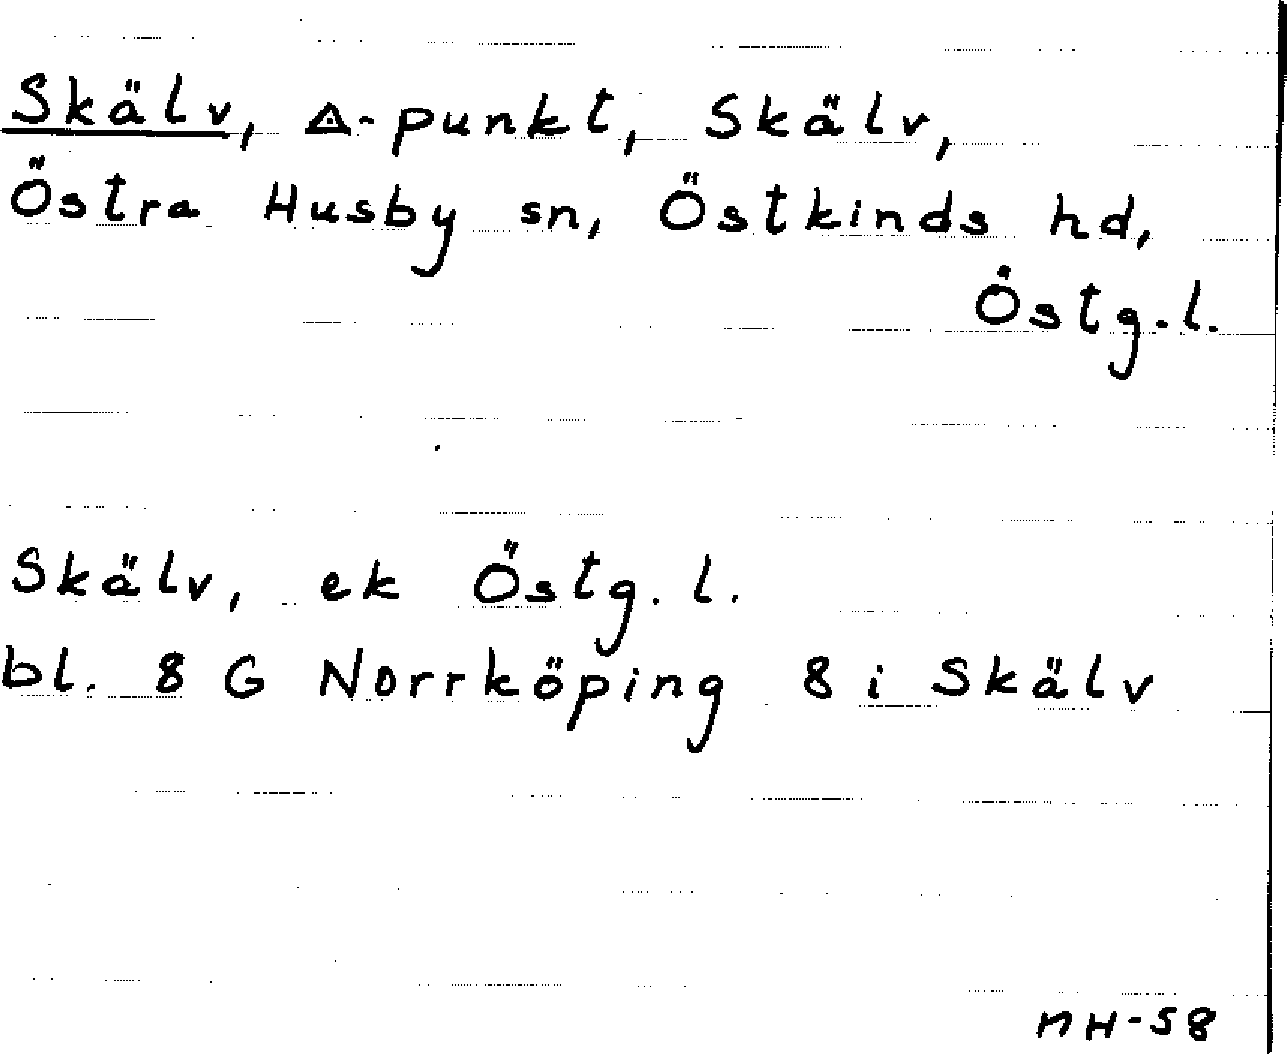 Skälv, △-punkt, Skälv,
Östra Husby sn, Östkinds hd,
Östg.l.
Skälv, ek Östg. l.
bl. 8 G Norrköping 8 i Skälv
NH-58